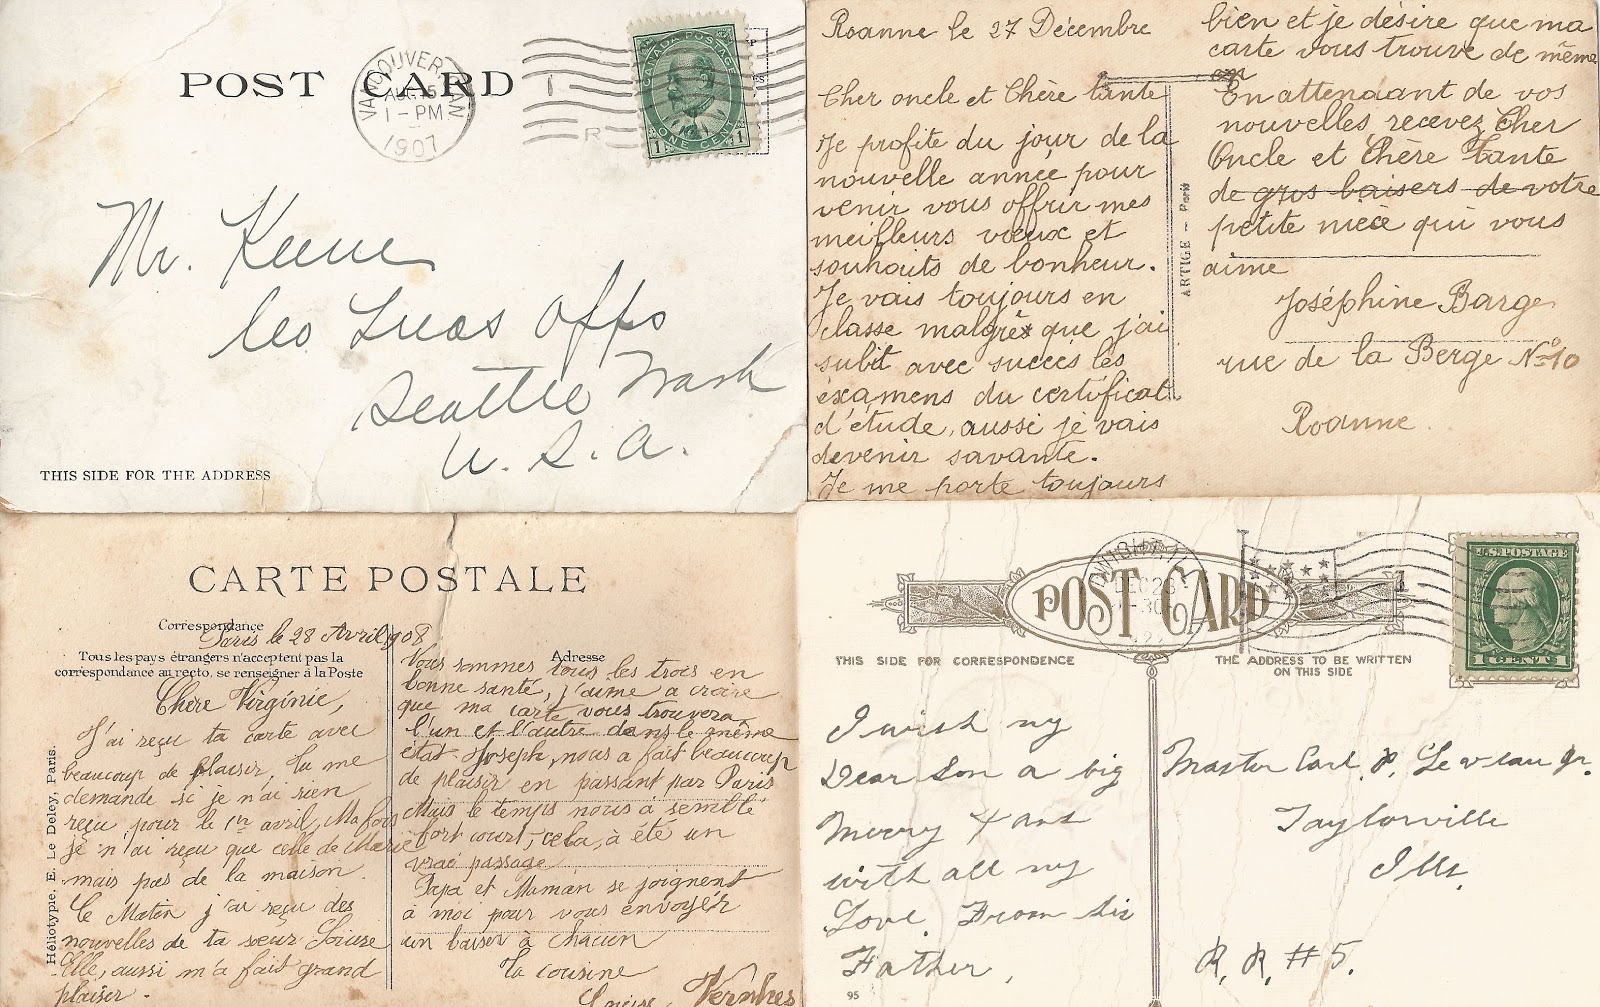 POST CARD
VANCOUVER, CAN
AUG 15
1 - PM
1907
CANADA POSTAGE
ONE CENT
1 1
Mr. Keene
Seattle Wash
U. S. A.
THIS SIDE FOR THE ADDRESS
Roanne le 27 Décembre
Cher oncle et Chère tante
Je profite du jour de la
nouvelle année pour
venir vous offrir mes
meilleurs vœux et
souhaits de bonheur.
Je vais toujours en
classe malgrès que j'ai
subit avec succès les
éxamens du certificat
d'étude, aussi je vais
devenir savante.
Je me porte toujours
ARTIGE - Paris
bien et je désire que ma
carte vous trouve de même
En attendant de vos
nouvelles recevez Cher
Oncle et Chère Tante
de gros baisers de votre
petite nièce qui vous
aime
Joséphine Barge
rue de la Berge No 10
Roanne.
CARTE POSTALE
Correspondance
Paris le 28 Avril 908
Tous les pays étrangers n'acceptent pas la
correspondance au recto, se renseigner à la Poste
Chère Virginie,
J'ai reçu ta carte avec
beaucoup de plaisir, tu me
demande si je n'ai rien
reçu pour le 1er avril, Ma fois
je n'ai reçu que celle de Marie
mais pas de la maison.
Ce Matin j'ai reçu des
nouvelles de ta sœur
Elle, aussi m'a fait grand
plaisir.
Héliotypie, E. Le Deley, Paris.
Adresse
Vous sommes tous les trois en
bonne santé, j'aime a croire
que ma carte vous trouvera
l'un et l'autre dans le même
état. Joseph, nous a fait beaucoup
de plaisir en passant par Paris
Mais le temps nous à semblé
fort court, cela, à été un
vrai passage
Papa et Maman se joignent
à moi pour vous envoyér
un baiser à chacun
ta cousine
Vernhes
POST CARD
DEC 23
U.S. POSTAGE
1 CENT 1
THIS SIDE FOR CORRESPONDENCE
THE ADDRESS TO BE WRITTEN
ON THIS SIDE
I wish my
Dear Son a big
Merry Xmas
with all my
Love. From his
Father,
95
Master Carl P. Leveau Jr.
Taylorville
Ills.
R. R. #5.